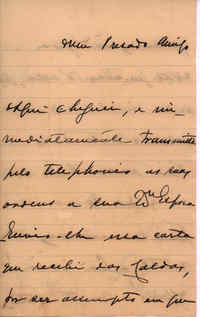 Meu Presado Amigo
Aqui cheguei, e im-
mediatamente transmitti
pelo telephonio as suas
ordens a sua Exma Esposa
Envio-lhe uma carta
que recebi das Caldas,
por ser assumpto em que